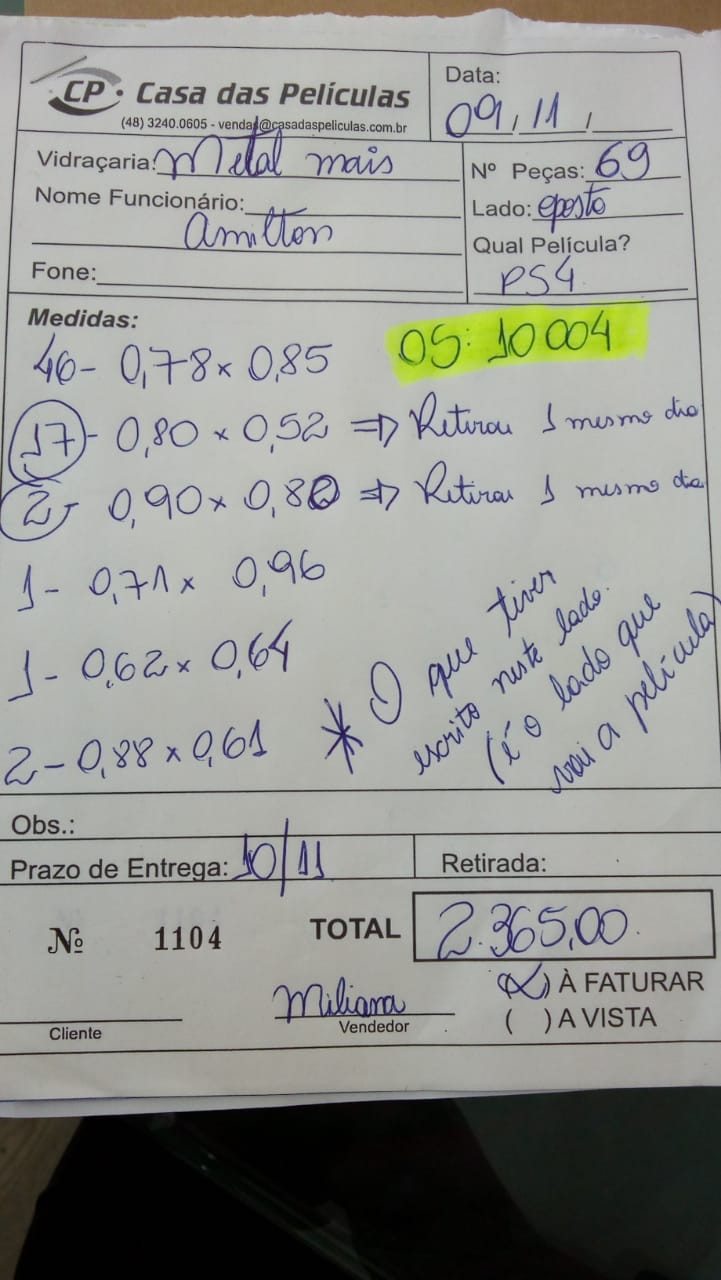 CP. Casa das Películas
(48) 3240.0605 - vendas@casadaspeliculas.com.br
Data:
09, 11, 
Vidraçaria: Metal mais
Nome Funcionário:
Amilton
Fone:
Nº Peças: 69
Lado: oposto
Qual Película?
PS4
Medidas:
OS: 10004
46- 0,78 x 0,85
17- 0,80 x 0,52 => Retirou 1 mesmo dia
2- 0,90 x 0,80 => Retirou 1 mesmo dia
1- 0,71 x 0,96
1- 0,62 x 0,64
2- 0,88 x 0,61
* O que tiver
escrito neste lado.
(é o lado que
vai a película)
Obs.:
Prazo de Entrega: 10/11
Retirada:
Nº 1104
TOTAL 2.365,00
(X) À FATURAR
( ) A VISTA
Cliente
Miliana
Vendedor